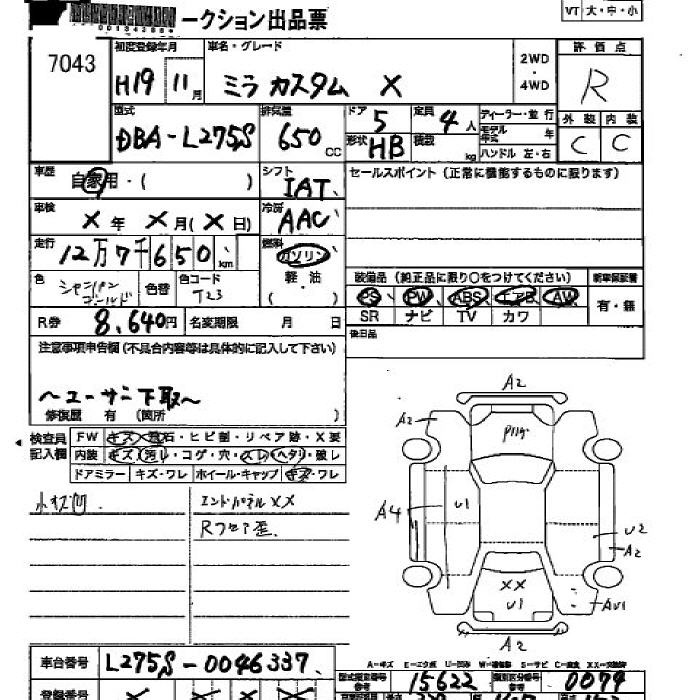 ークション出品票
VT 大・中・小
7043
初度登録年月 車名・グレード 2WD・4WD 評価点
H19 11月 ミラ カスタム X R
型式 排気量 ドア 定員 ディーラー・並行 外装 内装
DBA-L275S 650cc 5 4人 モデル年式 年 C C
形状 HB 積載 kg ハンドル 左・右
車歴 自家用・( ) シフト IAT セールスポイント(正常に機能するものに限ります)
車検 X年 X月(X日) 冷房 AAC
走行 12万7千650km 燃料 ガソリン
色 シャンパンゴールド 色替 色コード T23 軽・油 ( )
装備品(純正品に限り○をつけてください) 新車保証書
PS PW ABS エアB AW 有・無
SR ナビ TV カワ
R券 8,640円 名変期限 月 日 後日品
注意事項申告欄(不具合内容等は具体的に記入して下さい)
〜ユーザー下取〜
修復歴 有(箇所 )
検査員記入欄 FW キズ・飛石・ヒビ割・リペア跡・X要
内装 キズ・汚レ・コゲ・穴・スレ・ヘタリ・破レ
ドアミラー キズ・ワレ ホイール・キャップ キズ・ワレ
小キズ凹 エンドパネルXX
Rフロア歪
A2
A2
P
A4 U1 U2
A2
XX
U1 AU1
A2
A-キズ E-エクボ U-凹み W-補修跡 S-サビ C-腐食 XX-交換済
車台番号 L275S-0046337 型式指定番号 参考 15622 類別区分番号 参考 0074
登録番号 X X X X